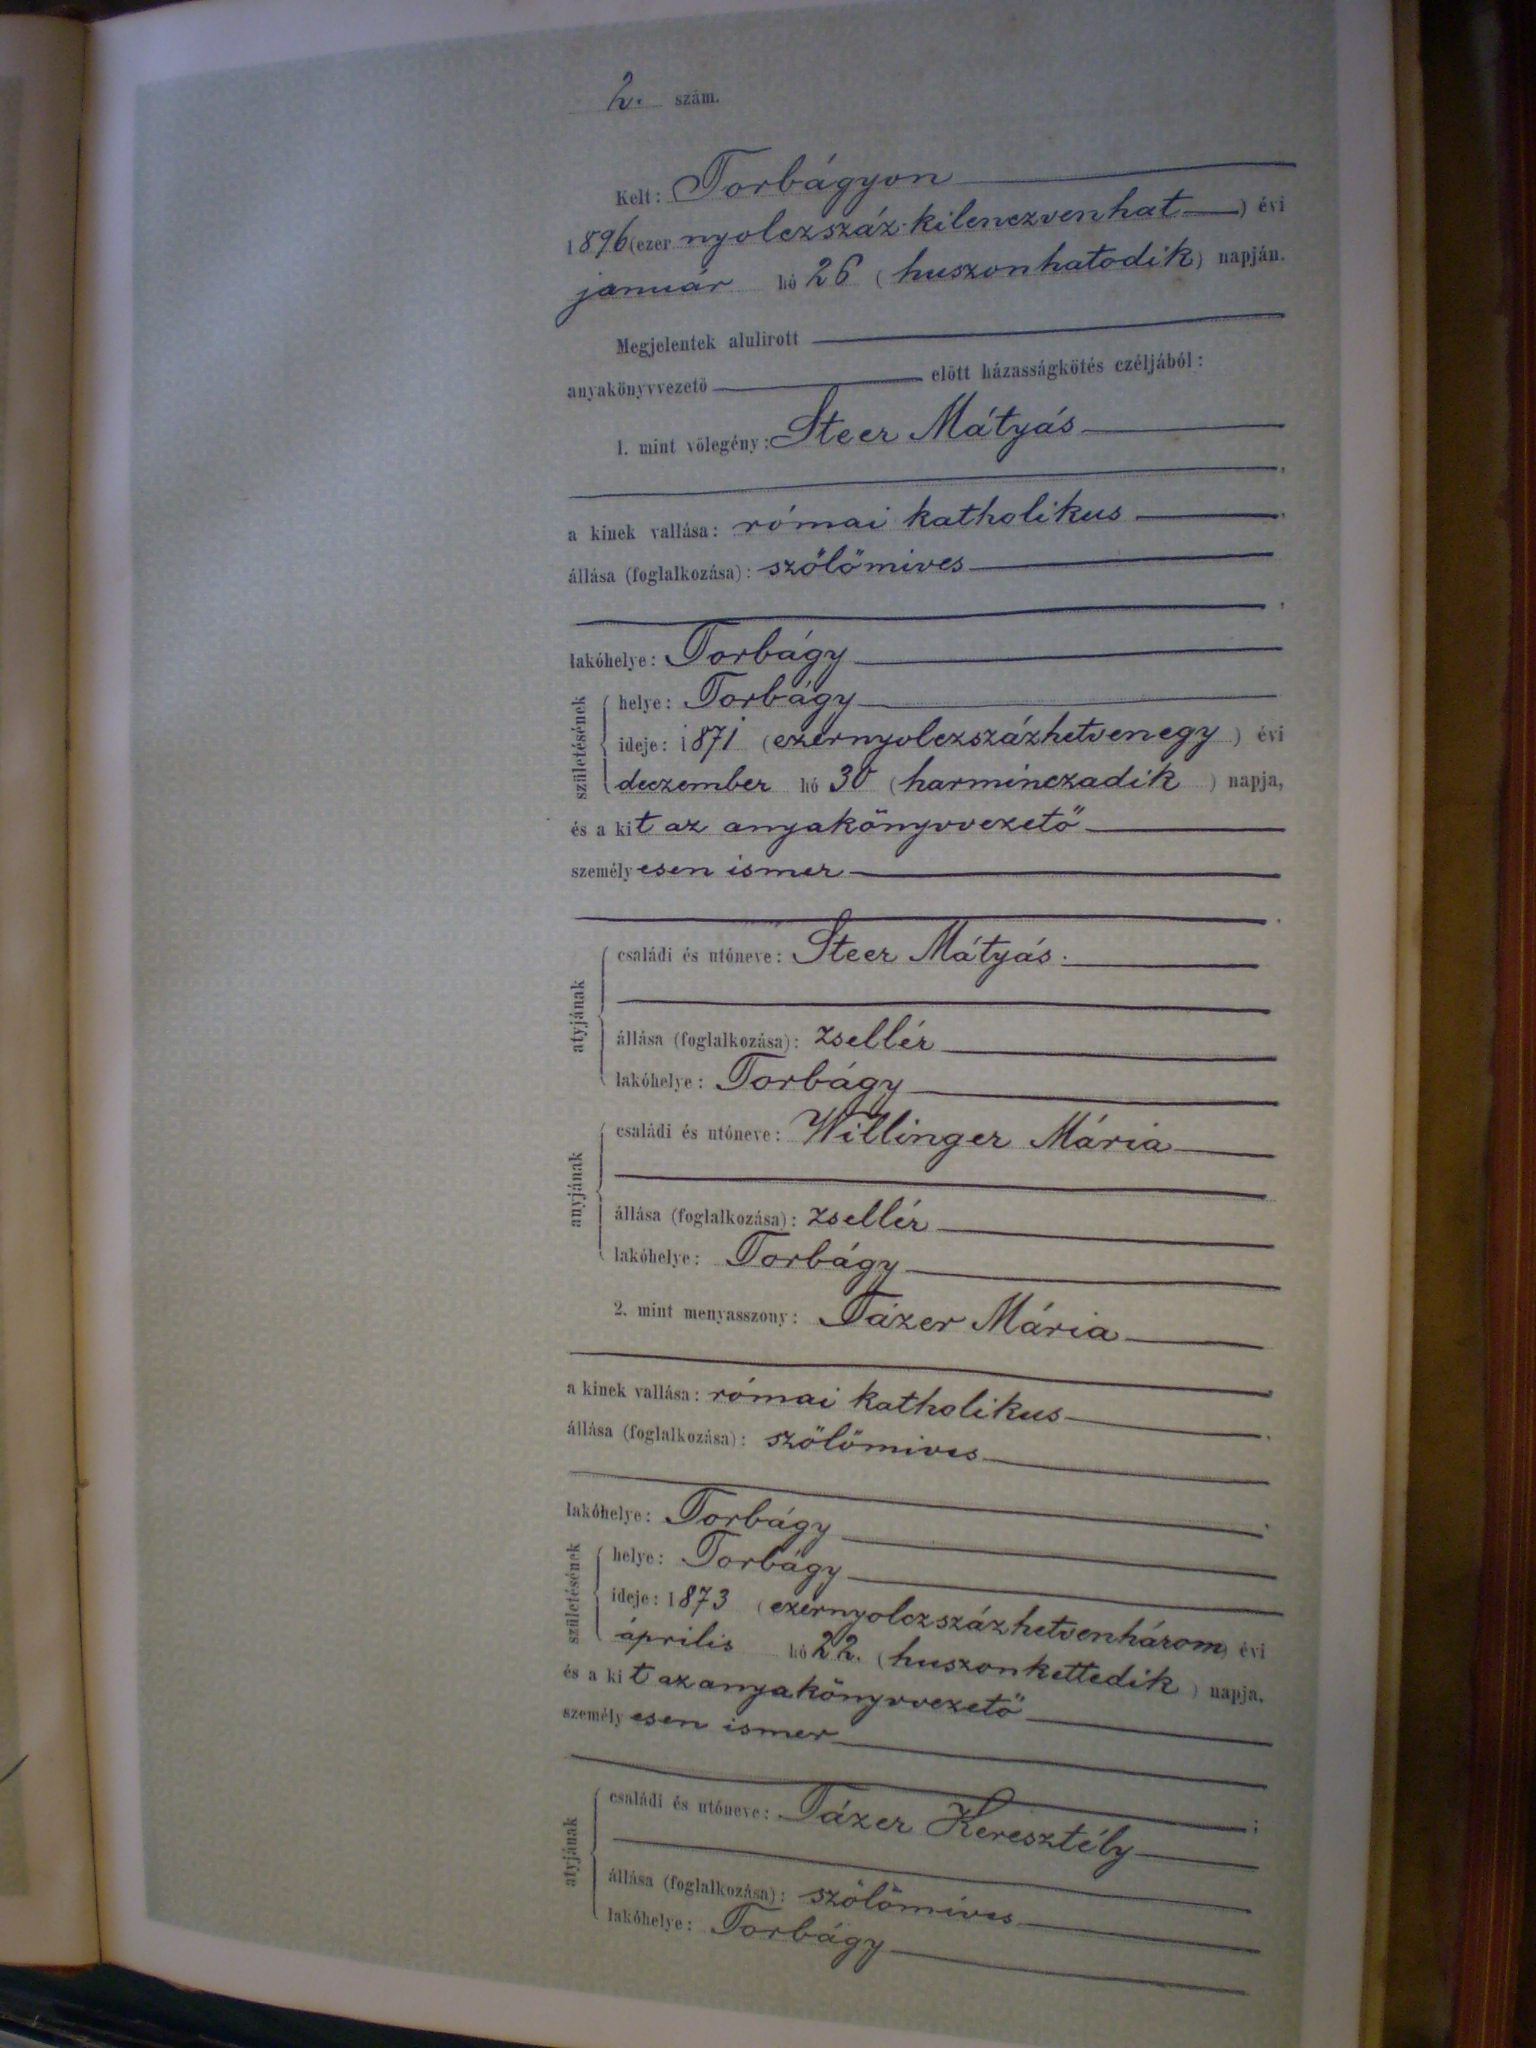 2. szám.
Kelt: Torbágyon
1896 (ezer nyolczszáz kilenczvenhat) évi
január hó 26 (huszonhatodik) napján.
Megjelentek alulirott
anyakönyvvezető előtt házasságkötés czéljából:
1. mint vőlegény: Steer Mátyás
a kinek vallása: római katholikus
állása (foglalkozása): szőlőmives
lakóhelye: Torbágy
születésének
helye: Torbágy
ideje: 1871 (ezernyolczszázhetvenegy) évi
deczember hó 30 (harminczadik) napja,
és a kit az anyakönyvvezető
személyesen ismer
atyjának
családi és utóneve: Steer Mátyás
állása (foglalkozása): zsellér
lakóhelye: Torbágy
anyjának
családi és utóneve: Willinger Mária
állása (foglalkozása): zsellér
lakóhelye: Torbágy
2. mint menyasszony: Tázer Mária
a kinek vallása: római katholikus
állása (foglalkozása): szőlőmives
lakóhelye: Torbágy
születésének
helye: Torbágy
ideje: 1873 (ezernyolczszázhetvenhárom) évi
április hó 22. (huszonkettedik) napja,
és a kit az anyakönyvvezető
személyesen ismer
atyjának
családi és utóneve: Tázer Keresztély
állása (foglalkozása): szőlőmives
lakóhelye: Torbágy